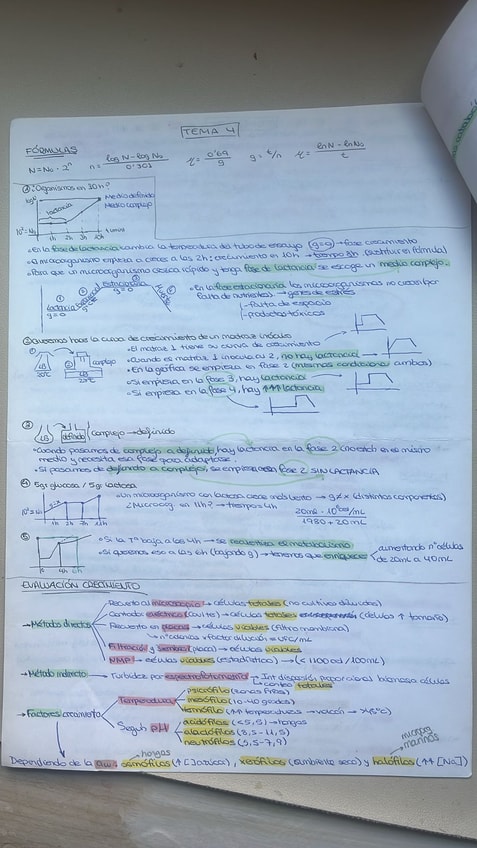 TEMA 4
FÓRMULAS
N = N₀ · 2ⁿ   n = (log N - log N₀) / 0'301   μ = 0'69 / g   g = t/n   μ = (ln N - ln N₀) / t
① ¿Organismos en 10h?
lactancia
Medio definido
Medio complejo
1h 2h 3h 10h
• En la fase de lactancia cambia la temperatura del tubo de ensayo (g=∞) → fase crecimiento
• El microorganismo empieza a crecer a las 2h; crecimiento en 10h → tiempo 8h (sustituir en fórmula)
• Para que un microorganismo crezca rápido y tenga fase de lactancia se escoge un medio complejo.
① lactancia g=0
② Exponencial
③ Estacionaria g=0
④ Muerte
• En la fase estacionaria los microorganismos no crecen (por
falta de nutrientes). → genes de estrés
- falta de espacio
- productos tóxicos
② Queremos hacer la curva de crecimiento de un matraz inóculo
• El matraz 1 tiene su curva de crecimiento
① LB
② complejo
LB
• Cuando es matraz 1 inocula au 2, no hay lactancia
• En la gráfica se empieza en fase 2 (mismas condiciones ambos)
• Si empresa en la fase 3, hay lactancia
• Si empresa en la fase 4, hay ↑↑↑ lactancia
③ LB definido (complejo → definido
• Cuando pasamos de complejo a definido, hay lactancia en la fase 2 (no están en el mismo
medio y necesita esa fase para adaptarse.
• Si pasamos de definido a complejo, se empresa en fase 2 SIN LACTANCIA
④ 5gr glucosa / 5gr lactosa
1h 2h 3h 11h
• Un microorganismo con lactosa crece más lento → g≠x (distintos componentes)
¿Microorg. en 11h? → tiempo: 4h
1980 + 20 mL
⑤ • Si la Tª baja a las 4h → se ralentiza el metabolismo
• Si queremos eso a las 6h (bajando g) → tenemos que enriquecer
aumentando nº células
de 20mL a 40mL
EVALUACIÓN CRECIMIENTO
→ Métodos directos
Recuento al microscopio → células totales (no cultivos diluidos)
Contador eléctrico (coulter) → células totales (células ↑ tamaño)
Recuento en placas → células viables (filtro membrana)
↳ nº colonias × factor dilución = UFC/mL
Filtración y siembra (placa) → células viables
NMP → células viables (estadístico) → (<1100 cel/100mL)
→ Método indirecto → Turbidez por espectrofotometría → Int. dispersión proporcional biomasa células
conteo totales
→ Factores crecimiento
Temperatura
psicrófilo (zonas frías)
mesófilo (10-40 grados)
termófilo (↑↑ temperaturas → volcán → >45ºC)
Según pH
acidófilos (<5,5) → hongos
alcalófilos (8,5-11,5)
neutrófilos (5,5-7,9)
hongos
micro marinos
Dependiendo de la Aw: osmófilos (↑ [azúcar]), xerófilos (ambiente seco) y halófilos (↑↑ [Na])